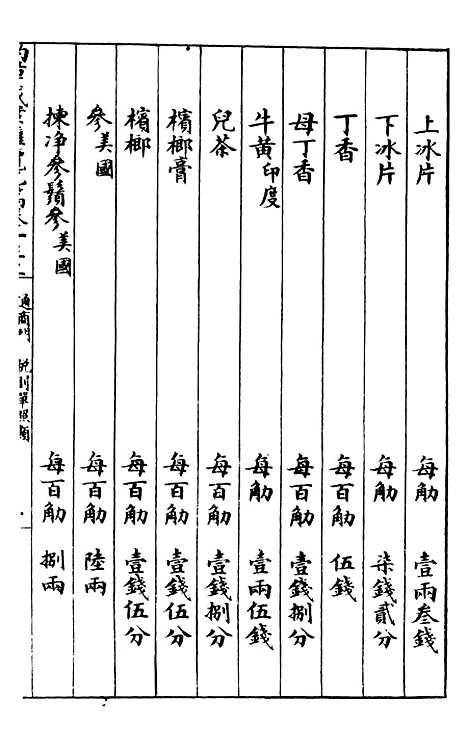 上冰片 每觔 壹兩叁錢
下冰片 每觔 柒錢貳分
丁香 每百觔 伍錢
母丁香 每百觔 壹錢捌分
牛黃印度 每觔 壹兩伍錢
兒茶 每百觔 壹錢捌分
檳榔膏 每百觔 壹錢伍分
檳榔 每百觔 壹錢伍分
參美國 每百觔 陸兩
揀净參鬚參美國 每百觔 捌兩
通商門 稅則單照類